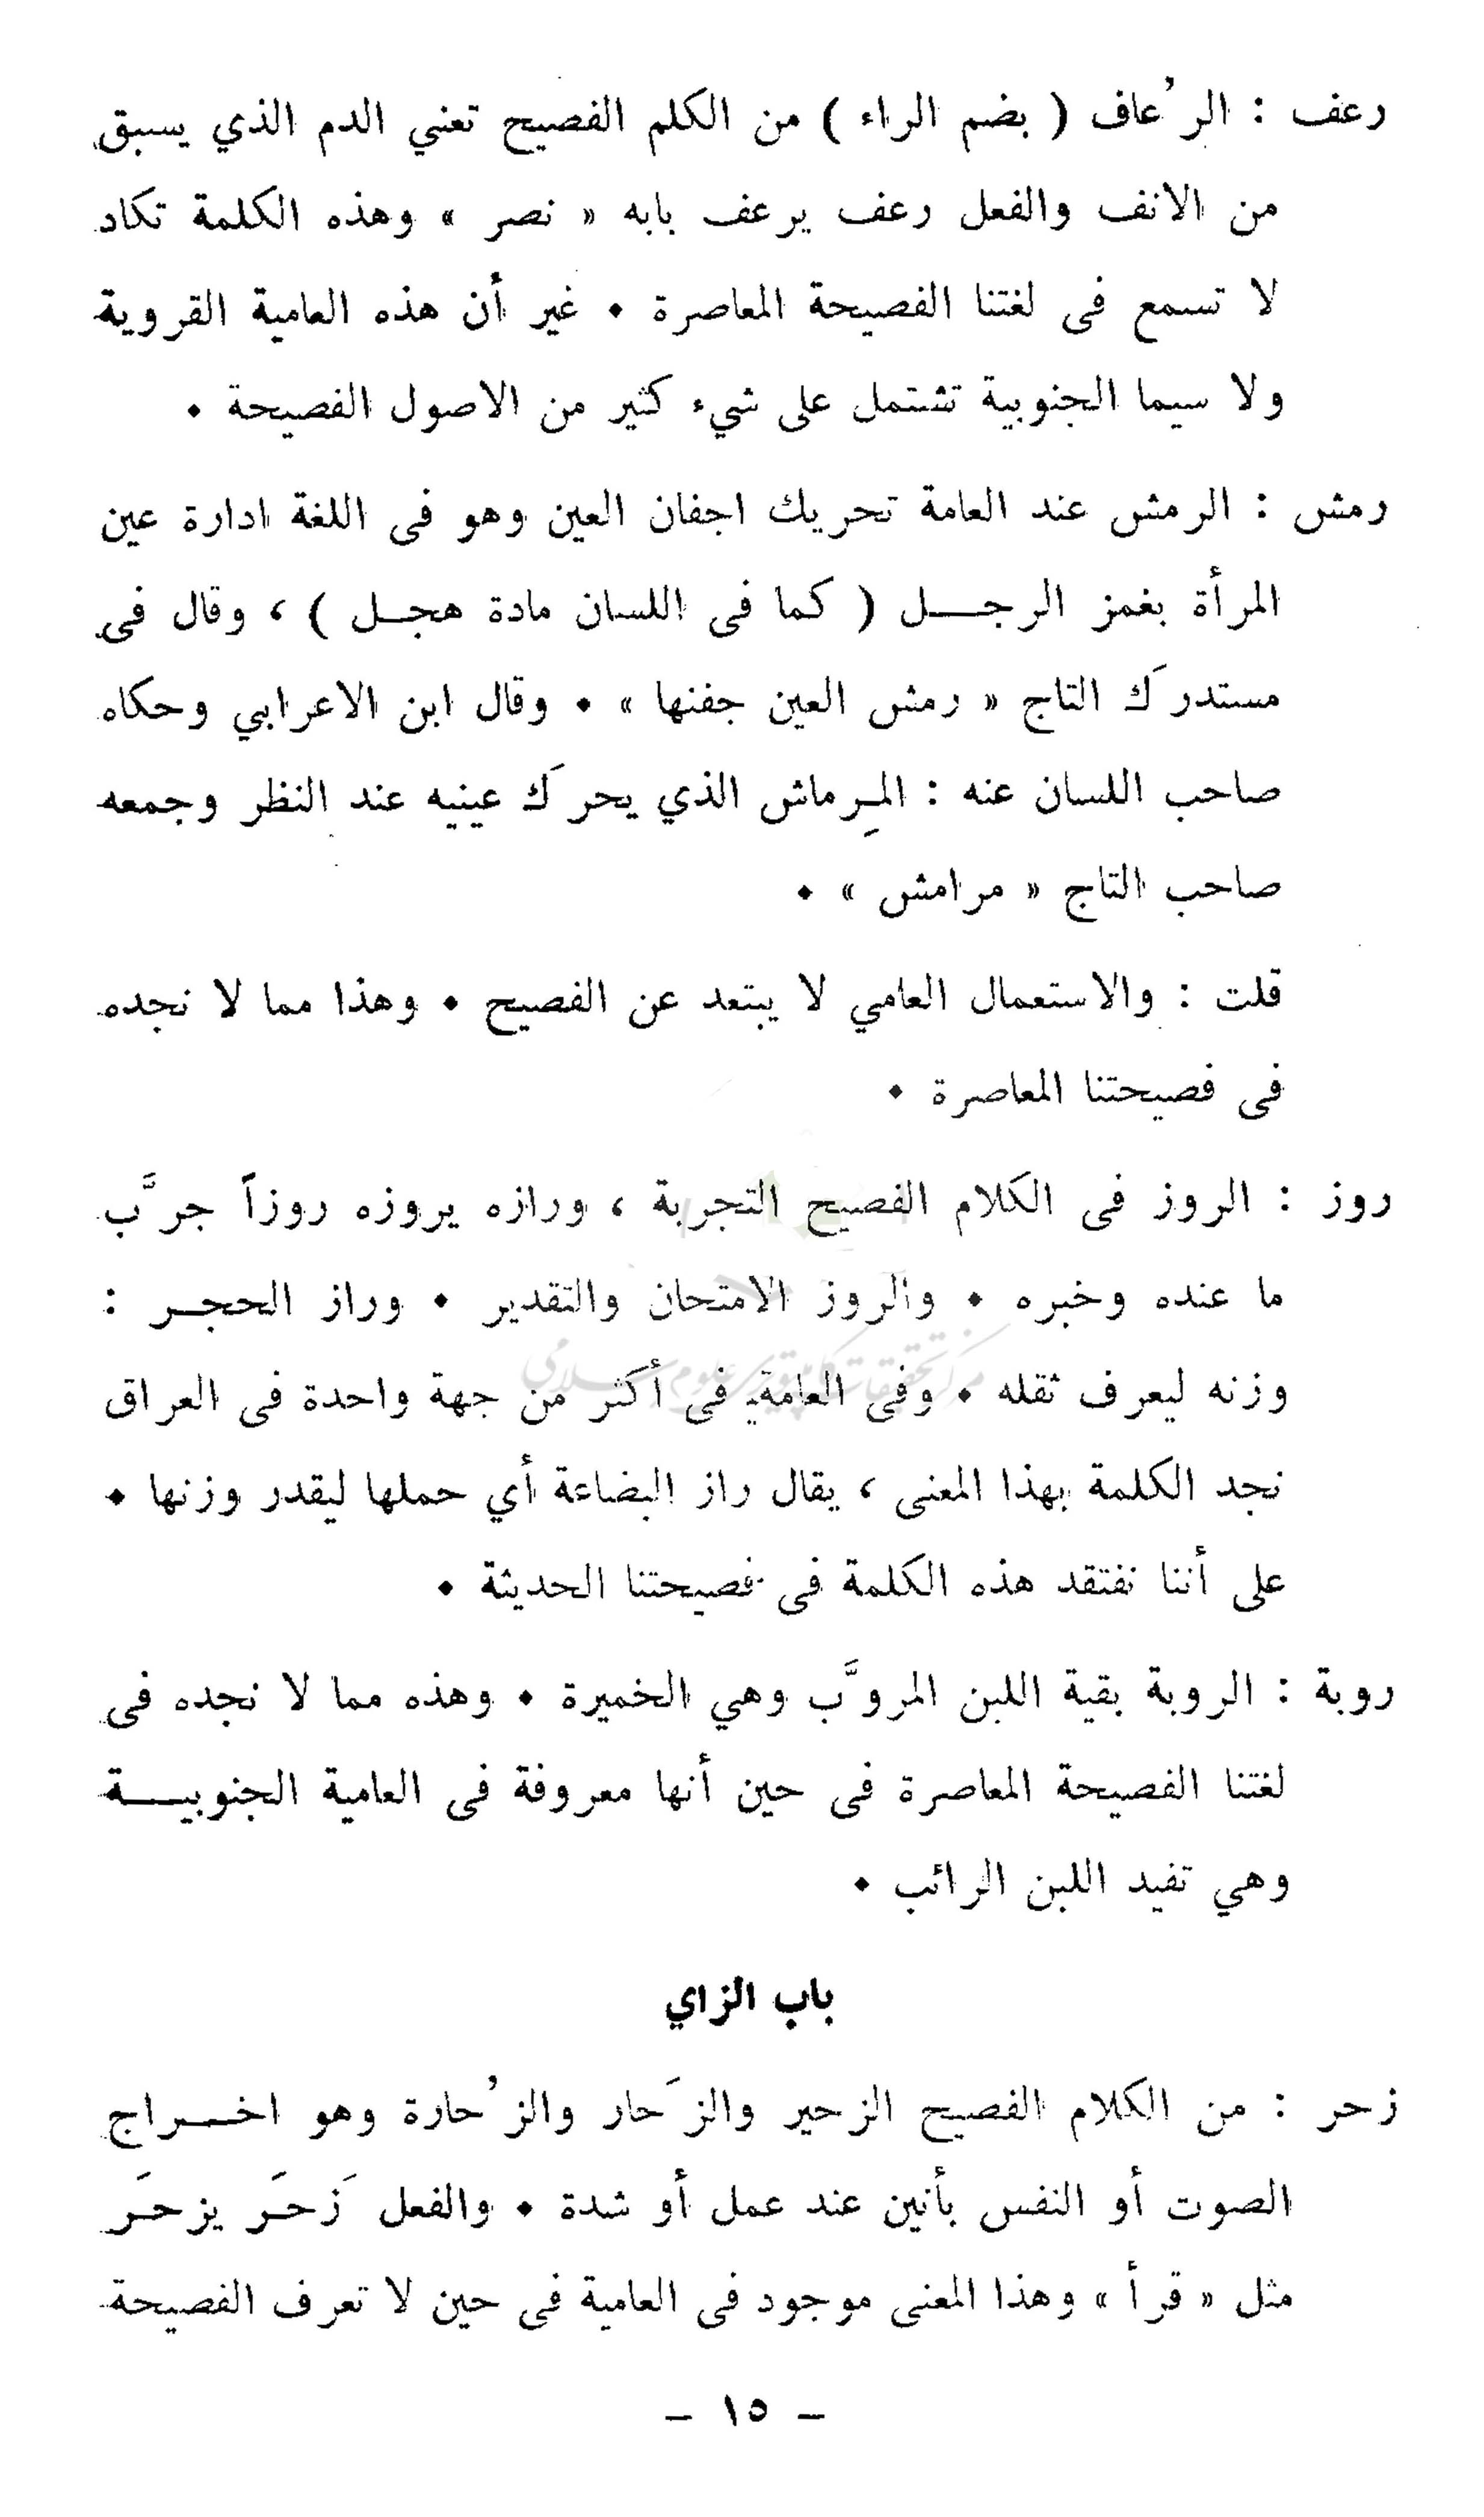 رعف : الرُعاف ( بضم الراء ) من الكلم الفصيح تعني الدم الذي يسبق
من الانف والفعل رعف يرعف بابه « نصر » وهذه الكلمة تكاد
لا تسمع فى لغتنا الفصيحة المعاصرة • غير أن هذه العامية القروية
ولا سيما الجنوبية تشتمل على شيء كثير من الاصول الفصيحة •
رمش : الرمش عند العامة تحريك اجفان العين وهو فى اللغة ادارة عين
المرأة بغمز الرجـــل ( كما فى اللسان مادة هجـل ) ، وقال فى
مستدرَك التاج « رمش العين جفنها » • وقال ابن الاعرابي وحكاه
صاحب اللسان عنه : المِرماش الذي يحرَك عينيه عند النظر وجمعه
صاحب التاج « مرامش » •
قلت : والاستعمال العامي لا يبتعد عن الفصيح • وهذا مما لا نجده
فى فصيحتنا المعاصرة •
روز : الروز فى الكلام الفصيح التجربة ، ورازه يروزه روزاً جرَّب
ما عنده وخبره • والروز الامتحان والتقدير • وراز الحجـر :
وزنه ليعرف ثقله • وفى العامة فى أكثر من جهة واحدة فى العراق
نجد الكلمة بهذا المعنى ، يقال راز البضاعة أي حملها ليقدر وزنها •
على أننا نفتقد هذه الكلمة فى فصيحتنا الحديثة •
روبة : الروبة بقية اللبن المروَّب وهي الخميرة • وهذه مما لا نجده فى
لغتنا الفصيحة المعاصرة فى حين أنها معروفة فى العامية الجنوبيـــة
وهي تفيد اللبن الرائب •
باب الزاي
زحر : من الكلام الفصيح الزحير والزَحار والزُحارة وهو اخـراج
الصوت أو النفس بأنين عند عمل أو شدة • والفعل زَحَر يزحَر
مثل « قرأ » وهذا المعنى موجود فى العامية فى حين لا تعرف الفصيحة
– ١٥ –
مركز تحقيقات كامپيوترى علوم سلامى